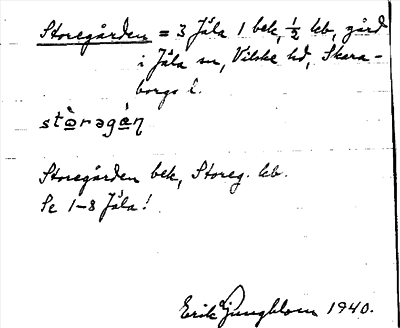 Storegården = 3 Jäla 1 bek, ½ kb, gård
i Jäla sn, Vilske hd, Skara-
borgs l.
stòragán
Storegården bek, Storeg. kb.
Se 1-8 Jäla!
Erik Ljungblom 1940.